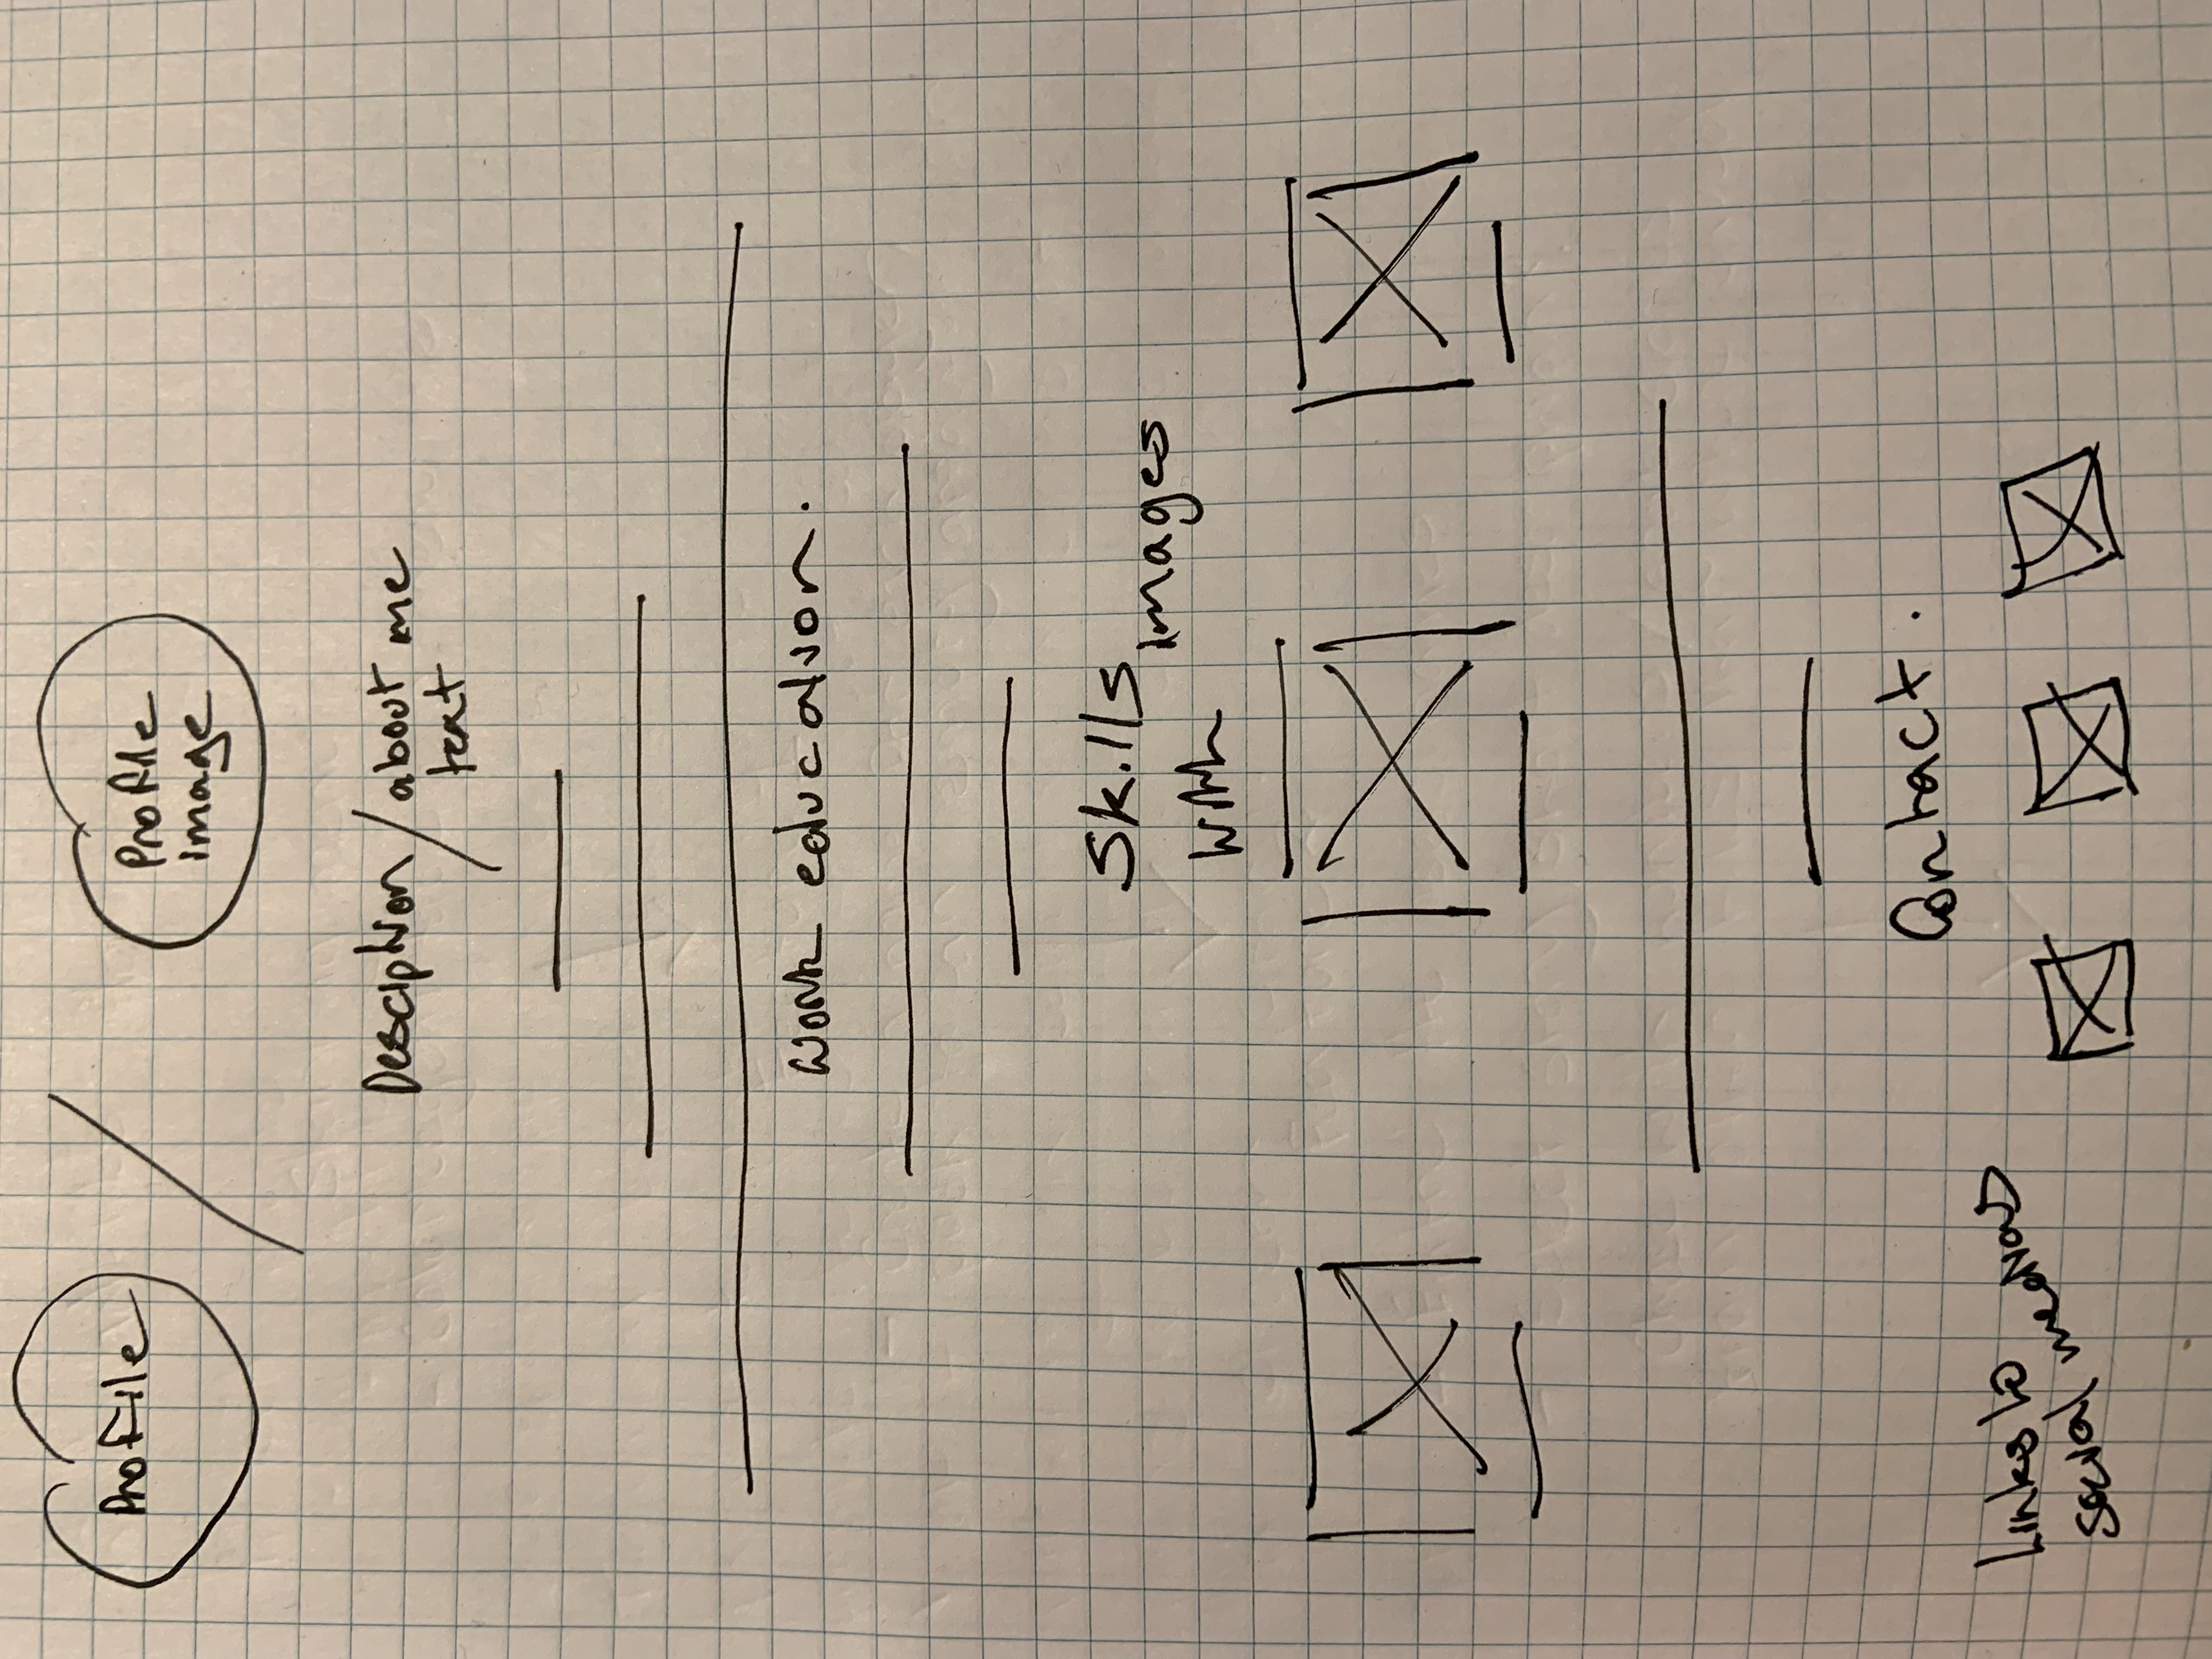 Profile
Profile
image
Desciption / about me
text
work education.
Skills
images
with
Contact.
Links to
social medias